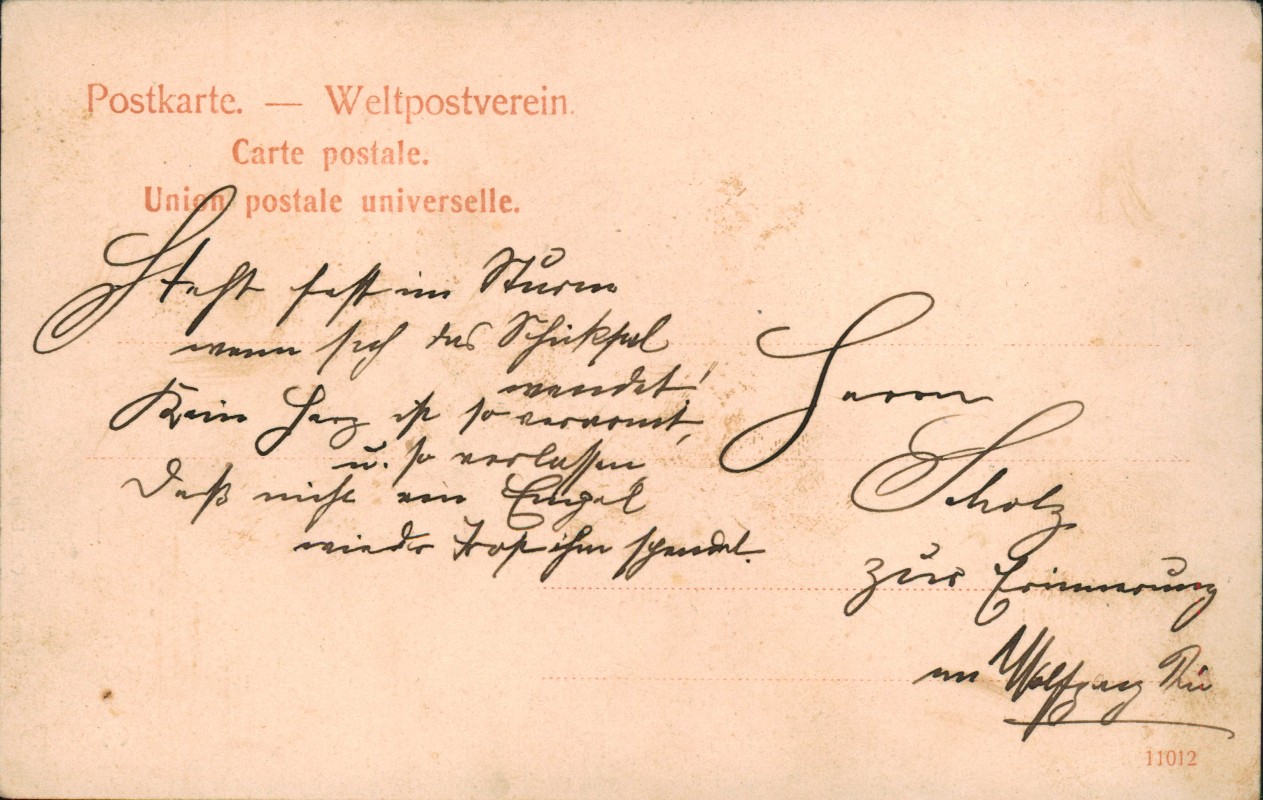 Postkarte. — Weltpostverein.
Carte postale.
Union postale universelle.
Steht fest im Sturm
wenn sich das Schicksal
wendet!
Kein Herz ist so verarmt,
u. so verlassen
Daß nicht ein Engel
wieder Trost ihm spendet.
Herrn
Scholz
zur Erinnerung
an Wolfgang
11012